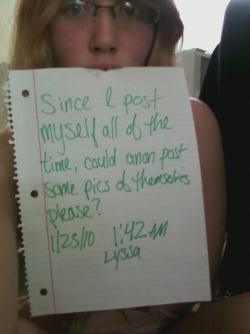 Since I post
myself all of the
time, could anon post
some pics of themselves
please?
1/25/10 1:42 AM
Lyssa